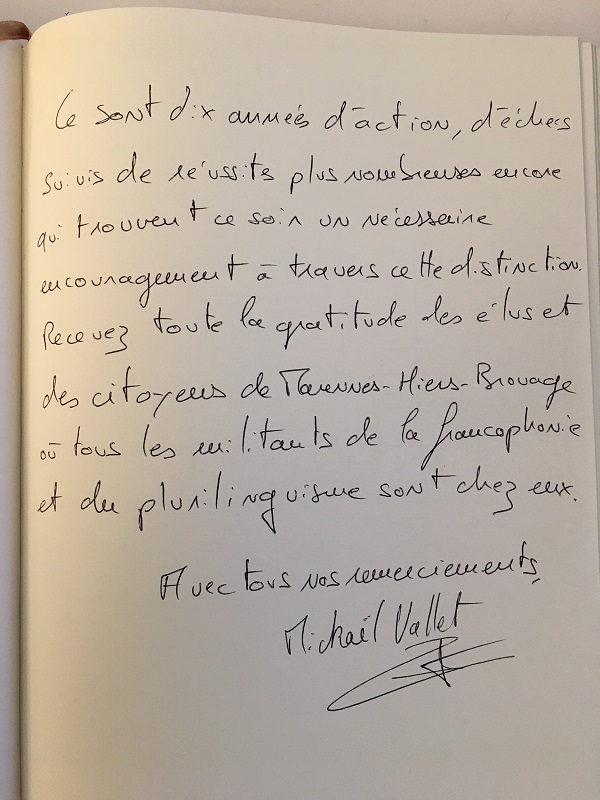 Ce sont dix années d'action, d'échecs
suivis de réussites plus nombreuses encore
qui trouvent ce soir un nécessaire
encouragement à travers cette distinction.
Recevez toute la gratitude des élus et
des citoyens de Marennes-Hiers-Brouage
où tous les militants de la francophonie
et du plurilinguisme sont chez eux.
Avec tous nos remerciements,
Mickaël Vallet